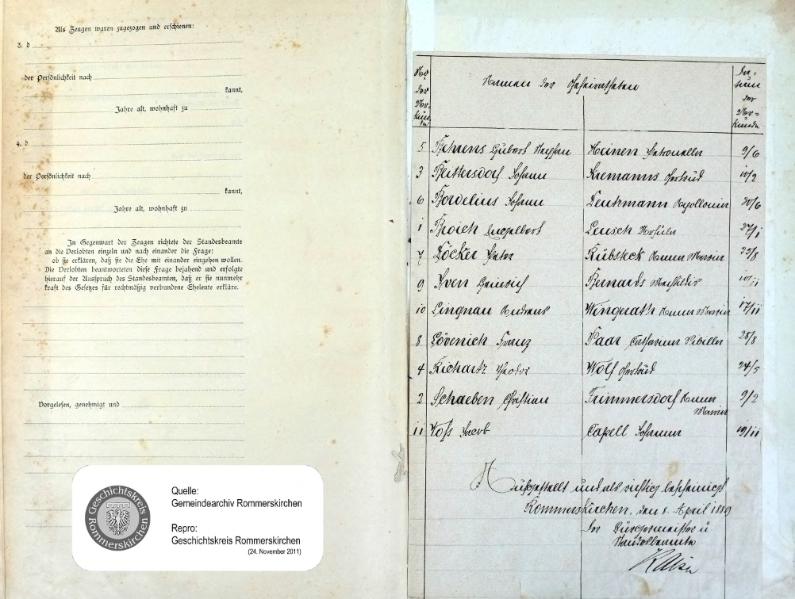 Als Zeugen waren zugezogen und erschienen:
3. d
der Persönlichkeit nach
kannt,
Jahre alt, wohnhaft zu
4. d
der Persönlichkeit nach
kannt,
Jahre alt, wohnhaft zu
In Gegenwart der Zeugen richtete der Standesbeamte
an die Verlobten einzeln und nach einander die Frage:
ob sie erklären, daß sie die Ehe mit einander eingehen wollen.
Die Verlobten beantworteten diese Frage bejahend und erfolgte
hierauf der Ausspruch des Standesbeamten, daß er sie nunmehr
kraft des Gesetzes für rechtmäßig verbundene Eheleute erkläre.
Vorgelesen, genehmigt und
Geschichtskreis
Rommerskirchen
Quelle:
Gemeindearchiv Rommerskirchen
Repro:
Geschichtskreis Rommerskirchen
(24. November 2011)
No der Urkunde
Namen der
Datum der Urkunde
5 Hubert Heinen Petronella 9/6
3 Johann Gertrud 10/2
6 Bordelius Johann Apollonia 20/6
1 Broich Engelbert 27/1
7 Löcker Peter Kübsteck Anna Maria
9 Iven Heinrich Bernards
10 Lingnau Andreas Anna Maria 17/11
8 Lövenich Franz Paar Catharina Sibilla 28/8
4 Richartz Theodor Wolf Gertrud 24/5
2 Schaeben Christian Trimmersdorf Anna Maria 9/2
11 Voß Jacob Capell Johanna 19/11
und als richtig bescheinigt
Rommerskirchen, den 1. April
Der Bürgermeister
Standesbeamte